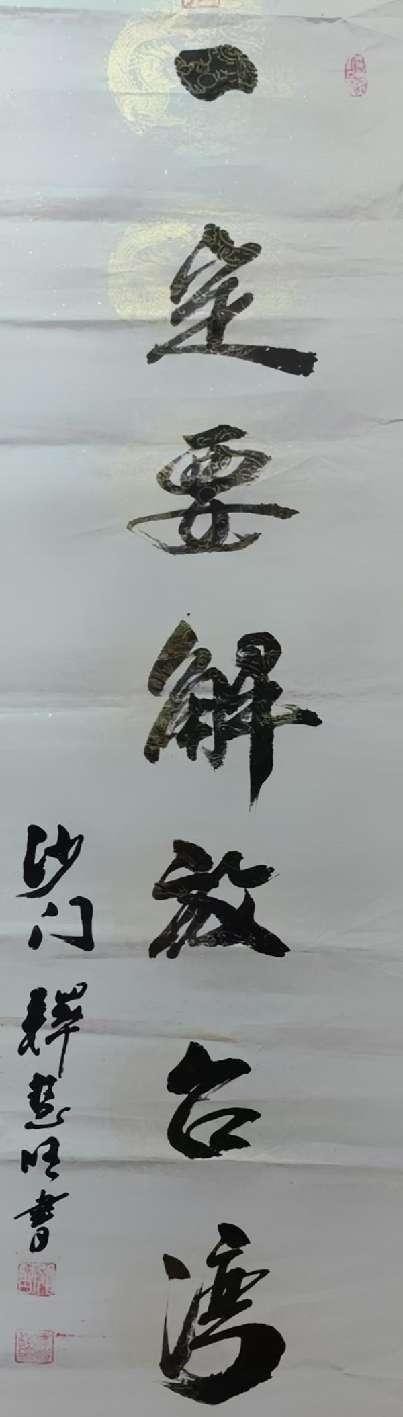 一定要解放台湾
沙门 释慧旺书